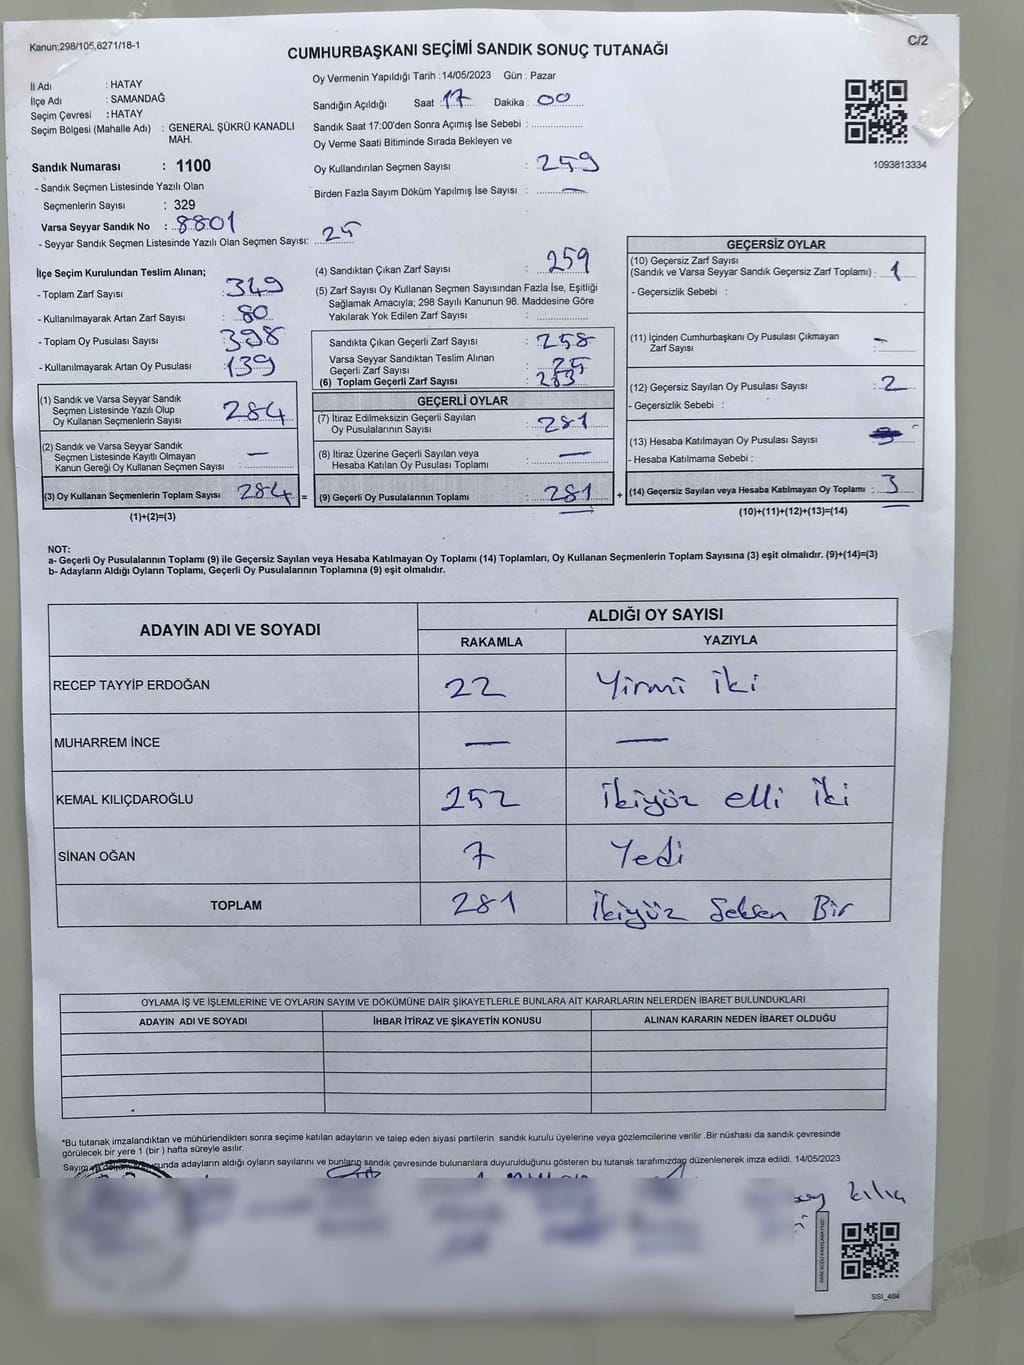 Kanun;298/105,6271/18-1
C/2
CUMHURBAŞKANI SEÇİMİ SANDIK SONUÇ TUTANAĞI
İl Adı : HATAY
İlçe Adı : SAMANDAĞ
Seçim Çevresi : HATAY
Seçim Bölgesi (Mahalle Adı) : GENERAL ŞÜKRÜ KANADLI MAH.
Sandık Numarası : 1100
- Sandık Seçmen Listesinde Yazılı Olan
Seçmenlerin Sayısı : 329
Varsa Seyyar Sandık No : 8801
- Seyyar Sandık Seçmen Listesinde Yazılı Olan Seçmen Sayısı: 25
Oy Vermenin Yapıldığı Tarih :14/05/2023 Gün : Pazar
Sandığın Açıldığı Saat : 17 Dakika : 00
Sandık Saat 17:00'den Sonra Açımış İse Sebebi :
Oy Verme Saati Bitiminde Sırada Bekleyen ve
Oy Kullandırılan Seçmen Sayısı : 259
Birden Fazla Sayım Döküm Yapılmış İse Sayısı : —
1093813334
İlçe Seçim Kurulundan Teslim Alınan;
- Toplam Zarf Sayısı : 349
- Kullanılmayarak Artan Zarf Sayısı : 80
- Toplam Oy Pusulası Sayısı : 398
- Kullanılmayarak Artan Oy Pusulası : 139
(1) Sandık ve Varsa Seyyar Sandık
Seçmen Listesinde Yazılı Olup
Oy Kullanan Seçmenlerin Sayısı : 284
(2) Sandık ve Varsa Seyyar Sandık
Seçmen Listesinde Kayıtlı Olmayan
Kanun Gereği Oy Kullanan Seçmen Sayısı : —
(3) Oy Kullanan Seçmenlerin Toplam Sayısı 284 =
(1)+(2)=(3)
(4) Sandıktan Çıkan Zarf Sayısı : 259
(5) Zarf Sayısı Oy Kullanan Seçmen Sayısından Fazla İse, Eşitliği
Sağlamak Amacıyla; 298 Sayılı Kanunun 98. Maddesine Göre
Yakılarak Yok Edilen Zarf Sayısı :
Sandıkta Çıkan Geçerli Zarf Sayısı : 258
Varsa Seyyar Sandıktan Teslim Alınan
Geçerli Zarf Sayısı : 25
(6) Toplam Geçerli Zarf Sayısı : 283
GEÇERLİ OYLAR
(7) İtiraz Edilmeksizin Geçerli Sayılan
Oy Pusulalarının Sayısı : 281
(8) İtiraz Üzerine Geçerli Sayılan veya
Hesaba Katılan Oy Pusulası Toplamı : —
(9) Geçerli Oy Pusulalarının Toplamı : 281 +
GEÇERSİZ OYLAR
(10) Geçersiz Zarf Sayısı
(Sandık ve Varsa Seyyar Sandık Geçersiz Zarf Toplamı) : 1
- Geçersizlik Sebebi :
(11) İçinden Cumhurbaşkanı Oy Pusulası Çıkmayan
Zarf Sayısı : —
(12) Geçersiz Sayılan Oy Pusulası Sayısı : 2
- Geçersizlik Sebebi :
(13) Hesaba Katılmayan Oy Pusulası Sayısı : —
- Hesaba Katılmama Sebebi :
(14) Geçersiz Sayılan veya Hesaba Katılmayan Oy Toplamı : 3
(10)+(11)+(12)+(13)=(14)
NOT:
a- Geçerli Oy Pusulalarının Toplamı (9) ile Geçersiz Sayılan veya Hesaba Katılmayan Oy Toplamı (14) Toplamları, Oy Kullanan Seçmenlerin Toplam Sayısına (3) eşit olmalıdır. (9)+(14)=(3)
b- Adayların Aldığı Oyların Toplamı, Geçerli Oy Pusulalarının Toplamına (9) eşit olmalıdır.
ADAYIN ADI VE SOYADI ALDIĞI OY SAYISI
RAKAMLA YAZIYLA
RECEP TAYYİP ERDOĞAN 22 Yirmi iki
MUHARREM İNCE — —
KEMAL KILIÇDAROĞLU 252 İkiyüz elli iki
SİNAN OĞAN 7 Yedi
TOPLAM 281 İkiyüz Seksen Bir
OYLAMA İŞ VE İŞLEMLERİNE VE OYLARIN SAYIM VE DÖKÜMÜNE DAİR ŞİKAYETLERLE BUNLARA AİT KARARLARIN NELERDEN İBARET BULUNDUKLARI
ADAYIN ADI VE SOYADI İHBAR İTİRAZ VE ŞİKAYETİN KONUSU ALINAN KARARIN NEDEN İBARET OLDUĞU
*Bu tutanak imzalandıktan ve mühürlendikten sonra seçime katılan adayların ve talep eden siyasi partilerin sandık kurulu üyelerine veya gözlemcilerine verilir .Bir nüshası da sandık çevresinde
görülecek bir yere 1 (bir ) hafta süreyle asılır.
Sayım adayların aldığı oyların sayılarını ve bunların sandık çevresinde bulunanlara duyurulduğunu gösteren bu tutanak tarafımızdan düzenlenerek imza edildi. 14/05/2023
SSI_404